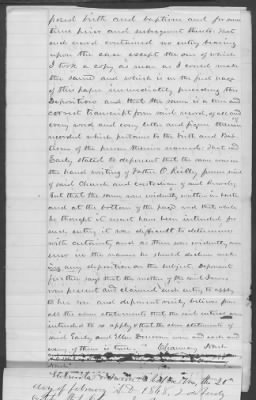 posed birth and baptism and for some
time prior and subsequent thereto. That
said record contained no entry bearing
upon the case except the one of which
I took a copy as near as I could make
the same and which is on the first page
of this paper immediately preceding this
Deposition and that the same is a true and
correct transcript from said record, of each and
every word and every letter and figure therein
recorded which pertains to the birth and Bap-
tism of the person therein named. That said
Early stated to deponent that the same was in
the hand writing of Father O'Reilly
of said Church and custodian of said records,
but that the same was evidently written in haste
and at the bottom of the page and that while
he thought it must have been intended for
such entry it was difficult to determine
with certainty and as there was evidently an
error in the names he should decline mak-
ing any deposition on the subject. Deponent
further says that the mother of
was present and claimed said entry to apply
to her son and deponent verily believes from
all the above statements that the said entry was
intended to so apply & that the above statements
of said Early and Ellen Donovan were and each and
every of them is true.
this the 25th
day of February A.D. 1868,